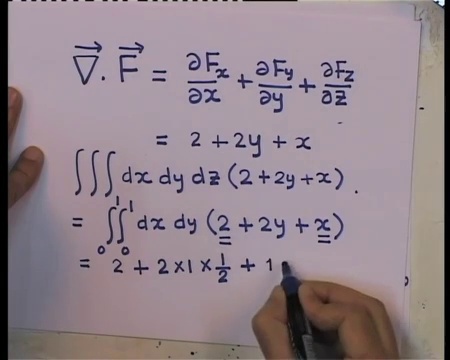 ∇⃗ . F⃗ = ∂Fx/∂x + ∂Fy/∂y + ∂Fz/∂z
= 2 + 2y + x
∫∫∫ dx dy dz (2 + 2y + x) .
= ∫₀¹∫₀¹ dx dy (2 + 2y + x)
= 2 + 2×1×1/2 + 1